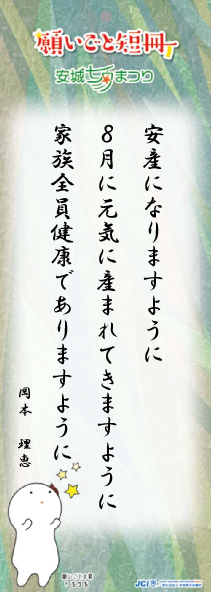 願いごと短冊
安城七夕まつり
安産になりますように
８月に元気に産まれてきますように
家族全員健康でありますように
岡本　理恵
JCI